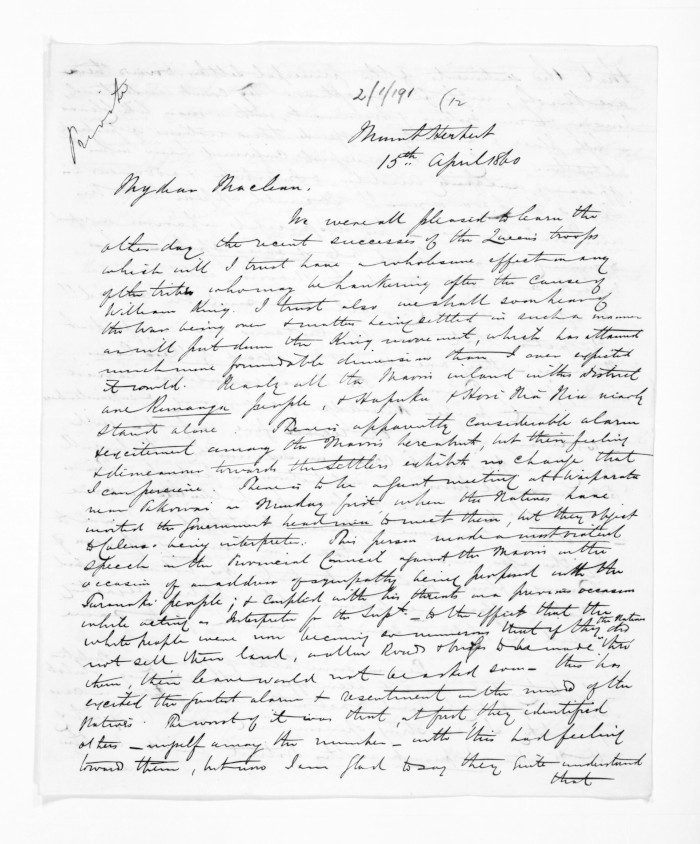 Private
2/1/191 (12
Mount Herbert
15th April 1860
My dear Maclean.
We were all pleased to learn the
other day the recent successes of the Queens troops
which will I trust have a wholesome effect on any
of the tribes who may be hankering after the cause of
William King. I trust also we shall soon hear of
the War being over & matters being settled in such a manner
as will put down the King movement, which has attained
much more formidable dimensions than I ever expected
it would. Nearly all the Maoris inland in this district
are Runanga people, & Hapuku & Hori Niä Niä nearly
stand alone. There is apparently considerable alarm
& excitement among the Maoris hereabout, but their feeling
& demeanor towards the Settlers exhibits no change that
I can perceive. There is to be a great meeting at Waiparata
near Tikowai on Monday first when the Natives have
invited the Government head men to meet them, but they object
to Colenso being interpreter. This person made a most violent
speech in the Provincial Council against the Maoris on the
occasion of an address of sympathy being proposed with the
Taranaki people; & coupled with his threats on a previous occasion
while acting as Interpreter for the Supt - to the effect that the
white people were now becoming so numerous that if they the Natives did
not sell their land, or allow Roads & bridges to be made thro
them, their leave would not be asked soon - this has
excited the greatest alarm & resentment in the minds of the
Natives. The worst of it was that, at first they identified
others - myself among the number - with this bad feeling
toward them, but now I am glad to say they quite understand
that